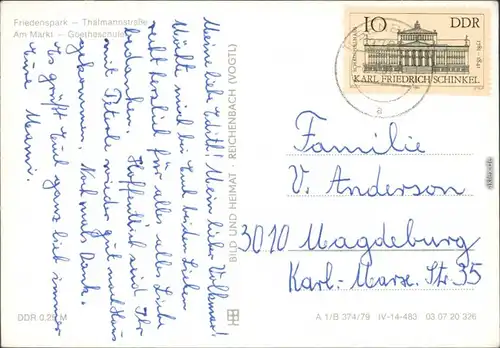 Friedenspark – Thälmannstraße
Am Markt – Goetheschule
Meine liebe Edith! Mein lieber Volkmar!
Möchte mich bei Euch beiden Lieben
recht herzlich für alles alles Liebe
bedanken. Hoffentlich seid Ihr
mit Petra wieder gut nach Haus
gekommen. Noch mals Dank.
Es grüßt Euch ganz lieb immer
Eure Mami.
BILD UND HEIMAT · REICHENBACH (VOGTL)
10 DDR
1781-1841
SCHAUSPIELHAUS BERLIN
KARL FRIEDRICH SCHINKEL
Familie
V. Anderson
3010 Magdeburg
Karl.-Marx. Str. 35
DDR 0,25 M
A 1/B 374/79 IV-14-483 03 07 20 326